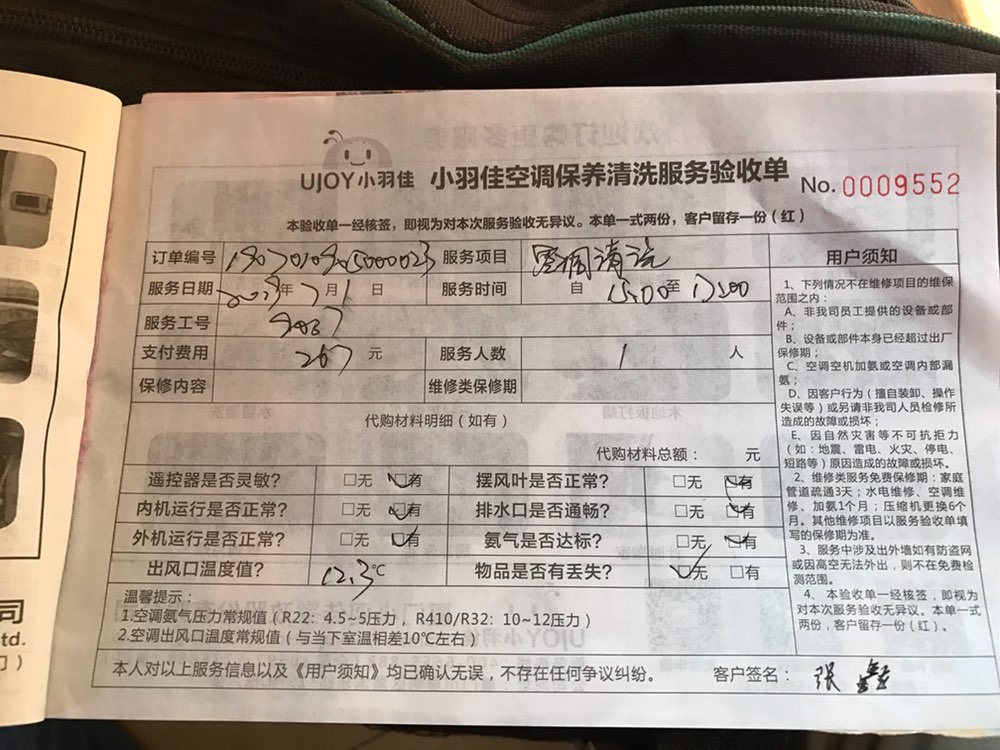 UJOY小羽佳 小羽佳空调保养清洗服务验收单 No. 0009552
本验收单一经核签，即视为对本次服务验收无异议。本单一式两份，客户留存一份（红）
订单编号 服务项目 空调清洗
服务日期 年 7 月 1 日 服务时间 自 15:00 至 17:00
服务工号
支付费用 267 元 服务人数 1 人
保修内容 维修类保修期
代购材料明细（如有）
代购材料总额： 元
遥控器是否灵敏？ □无 □有 摆风叶是否正常？ □无 □有
内机运行是否正常？ □无 □有 排水口是否通畅？ □无 □有
外机运行是否正常？ □无 □有 氨气是否达标？ □无 □有
出风口温度值？ 12.3℃ 物品是否有丢失？ □无 □有
温馨提示：
1.空调氨气压力常规值（R22：4.5~5压力，R410/R32：10~12压力）
2.空调出风口温度常规值（与当下室温相差10℃左右）
本人对以上服务信息以及《用户须知》均已确认无误，不存在任何争议纠纷。 客户签名： 张鑫
用户须知
1、下列情况不在维修项目的维保
范围之内：
A、非我司员工提供的设备或部
件；
B、设备或部件本身已经超过出厂
保修期；
C、空调空机加氨或空调内部漏
氨；
D、因客户行为（擅自装卸、操作
失误等）或另请非我司人员检修所
造成的故障或损坏；
E、因自然灾害等不可抗拒力
（如：地震、雷电、火灾、停电、
短路等）原因造成的故障或损坏。
2、维修类服务免费保修期：家庭
管道疏通3天；水电维修、空调维
修、加氨1个月；压缩机更换6个
月。其他维修项目以服务验收单填
写的保修期为准。
3、服务中涉及出外墙如有防盗网
或因高空无法外出，则不在免费检
测范围。
4、本验收单一经核签，即视为
对本次服务验收无异议。本单一式
两份，客户留存一份（红）。
司
td.
门）